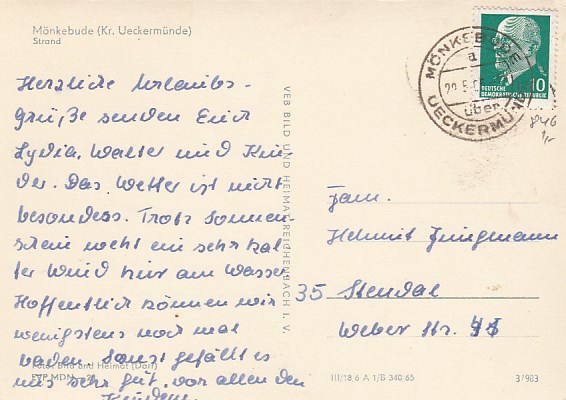 Mönkebude (Kr. Ueckermünde)
Strand
Herzliche Urlaubs-
grüße senden Euch
Lydia, Walter und Kin-
der. Das Wetter ist nicht
besonders. Trotz Sonnen-
schein weht ein sehr kal-
ter Wind hier am Wasser
Hoffentlich können wir
wenigstens noch mal
baden. Sonst gefällt es
uns sehr gut, vor allen den
Kindern.
Foto: Bild und Heimat (Darr)
EVP MDN
VEB BILD UND HEIMAT REICHENBACH I. V.
III/18/6 A 1/B 340/65
3/903
MÖNKEBUDE
a
über
UECKERMÜNDE
DEUTSCHE
DEMOKRATISCHE REPUBLIK
10
846
1,-
Fam.
Helmut Jungmann
35 Stendal
Weber Str.